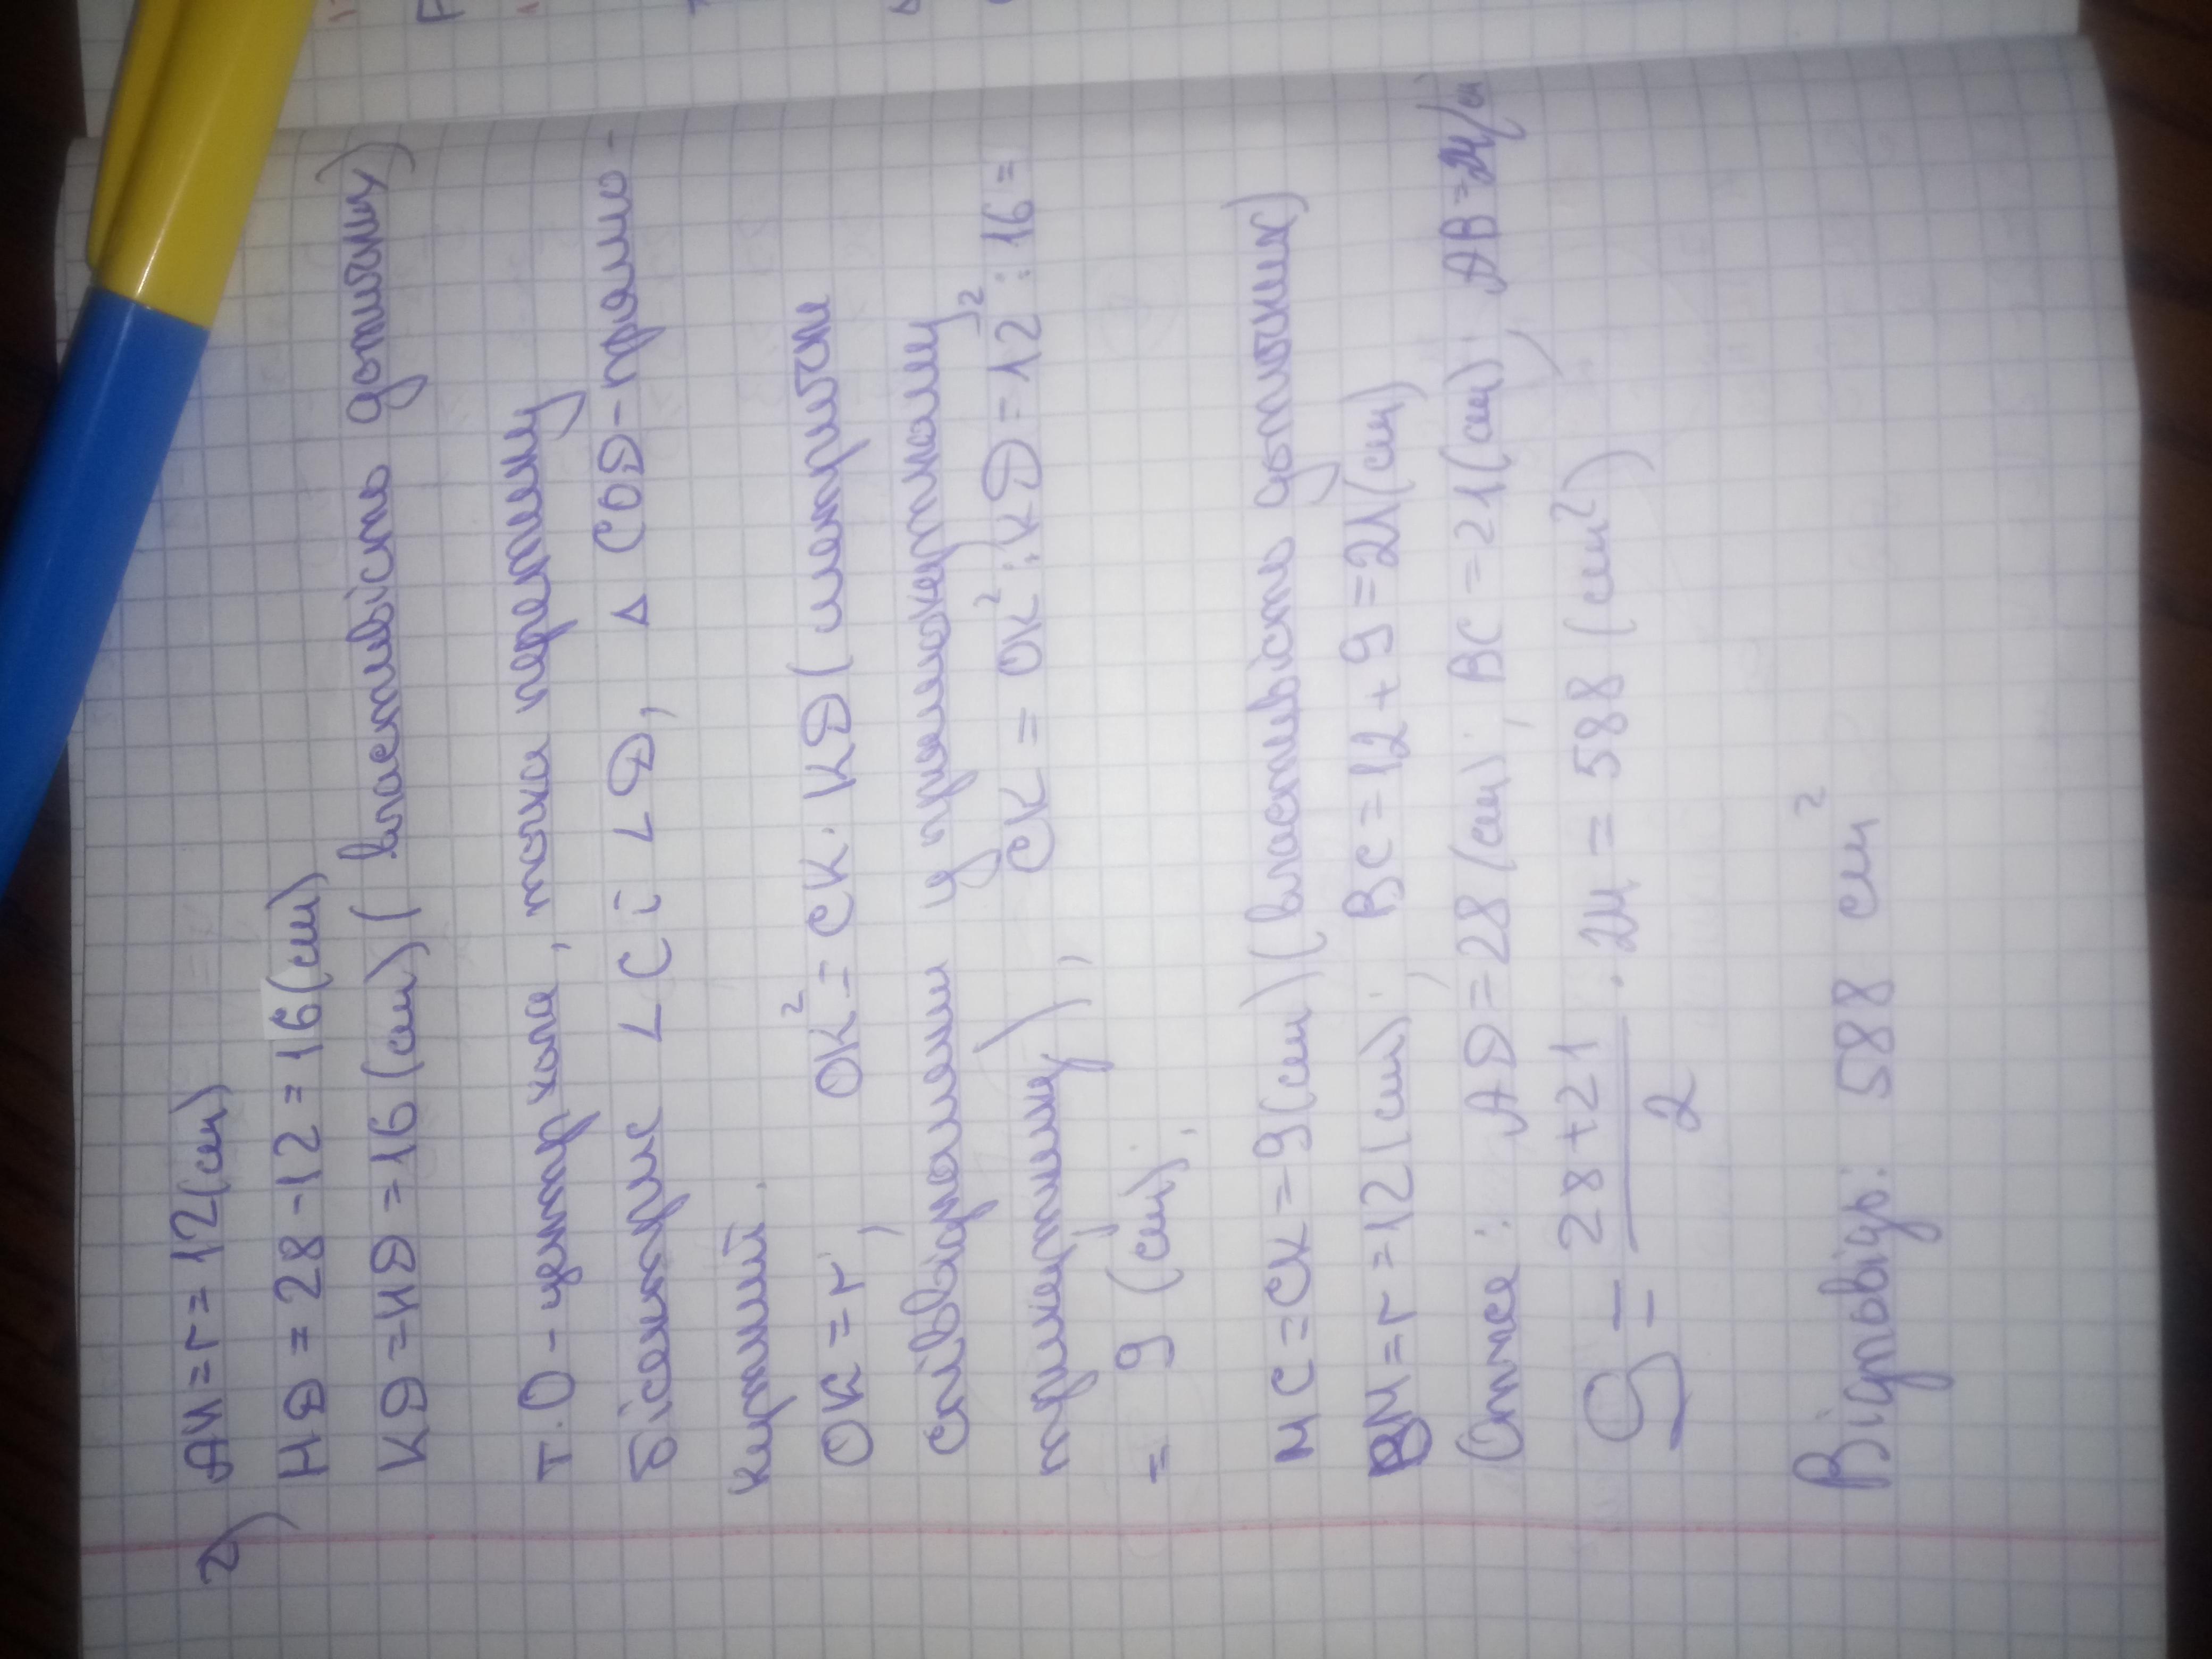 2) АН = r = 12 (см)
НD = 28 - 12 = 16 (см)
KD = HD = 16 (см) ( властивість дотичних)
т. О - центр кола, точка перетину
бісектрис ∠C і ∠D, Δ COD - прямо-
кутний.
OK = r, OK² = CK · KD ( метричні
співвідношення у прямокутному
трикутнику), CK = OK² : KD = 12² : 16 =
= 9 (см).
MC = CK = 9 (см) (властивість дотичних)
BM = r = 12 (см). BC = 12 + 9 = 21 (см)
Отже: AD = 28 (см), BC = 21 (см), AB = 24 (см)
S = 28 + 21 / 2 · 24 = 588 (см²)
Відповідь: 588 см²